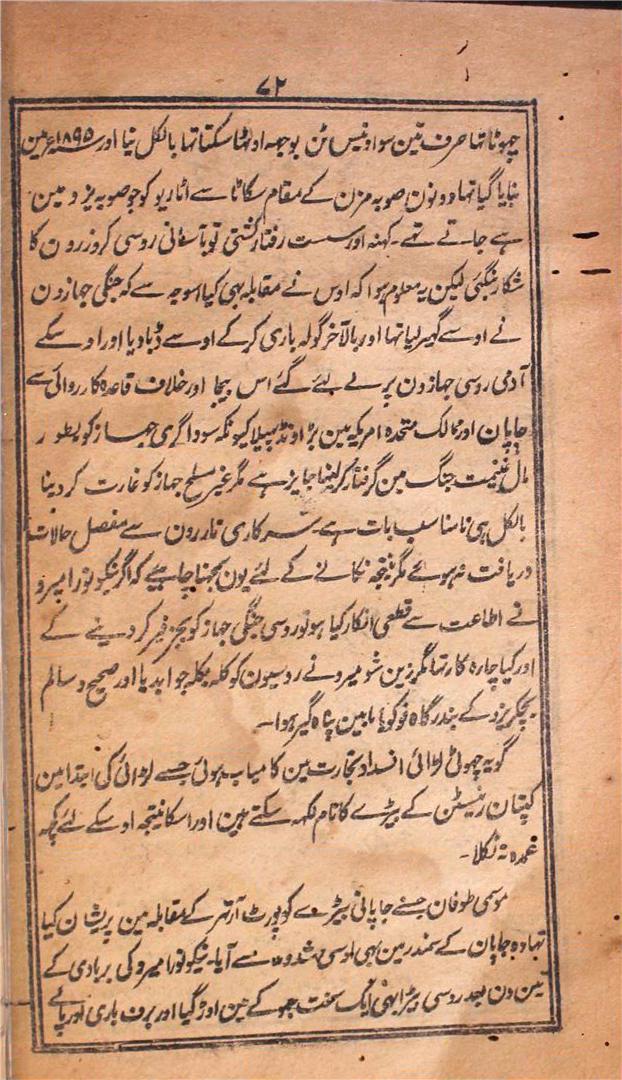 ۷۲
چھوٹا تھا صرف تین سو اونیس ٹن بوجھہ اوٹھا سکتا تھا بالکل نیا اور ۱۸۹۵ء مین
بنایا گیا تھا دونون صوبہ مزن کے مقام سکاٹا سے اٹاریو کو جو صوبہ یزو مین
ہے جاتے تھے۔ کہنہ اور سست رفتار کشتی تو بآسانی روسی کروزرون کا
شکار بنگئی لیکن یہ معلوم ہوا کہ اوس نے مقابلہ بہی کیا اسوجہ سے کہ جنگی جہازون
نے اوسے گہیر لیا تہا اور بالآخر گولہ باری کرکے اوسے ڈبا دیا اور اوسکے
آدمی روسی جہازون پر لے لئے گئے اس بیجا اور خلاف قاعدہ کارروائی سے
جاپان اور ممالک متحدہ امریکہ مین بڑا پہیلا کیونکہ سوداگری جہاز کو بطور
مال غنیمت جنگ مین گرفتار کر لینا جایز ہے مگر غیر مسلح جہاز کو غارت کر دینا
بالکل ہی نامناسب بات ہے۔ سرکاری تاررون سے مفصل حالات
دریافت نہ ہوئے مگر نتیجہ نکالنے کے لئے یون سمجہنا چاہیے کہ اگر نیکونورا میرو
نے اطاعت سے قطعی انکار کیا ہو تو روسی جنگی جہاز کو بجز فیر کر دینے کے
اور کیا چارہ کار تہا مگر زین شو میرو نے روسیون کو کلہ بکلہ جوابدیا اور صحیح و سالم
بچکر یزد کے بندرگاہ فوکویاما بین پناہ گیر ہوا۔
گو یہ چہوٹی لڑائی انسداد تجارت مین کامیاب ہوئی جسے لڑائی کی ابتدا مین
کپتان رنسٹن کے بیڑے کا نام لکہہ سکتے ہین اور اسکا نتیجہ اوسکے لئے کچہہ
عمدہ نہ نکلا۔
موسمی طوفان جسنے جاپانی بیڑے کو پورٹ آرتھر کے مقابلہ مین پریشان کیا
تہا وہ جاپان کے سمندر مین بہی اوسی شد ومد سے آیا۔ نیکونورا میرو کی بربادی کے
تین دن بعد روسی بیڑا بہی ایک سخت جہوکے مین اوڑ گیا اور برف باری اور پالے